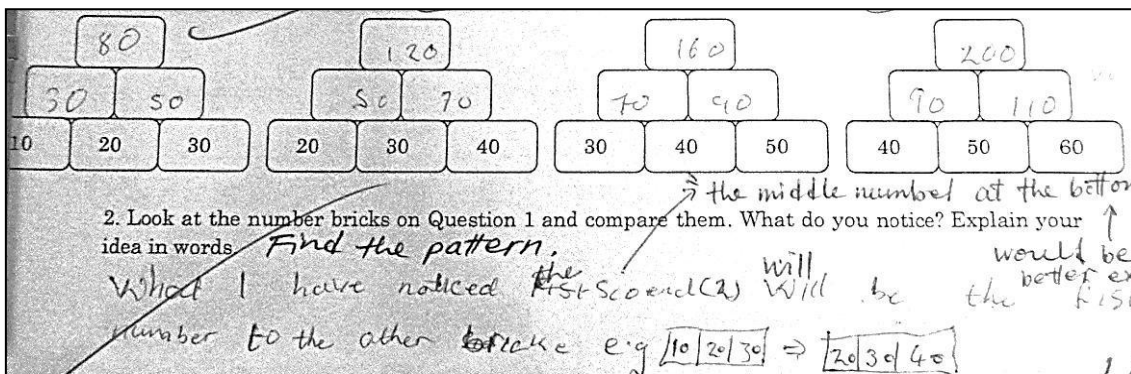 80 120 160 200
30 50 50 70 70 90 90 110
10 20 30 20 30 40 30 40 50 40 50 60
the middle number at the bottom
2. Look at the number bricks on Question 1 and compare them. What do you notice? Explain your
idea in words. Find the pattern.
would be
better ex
What I have noticed the (2) will will be the
number to the other e.g 10 20 30 ⇒ 20 30 40